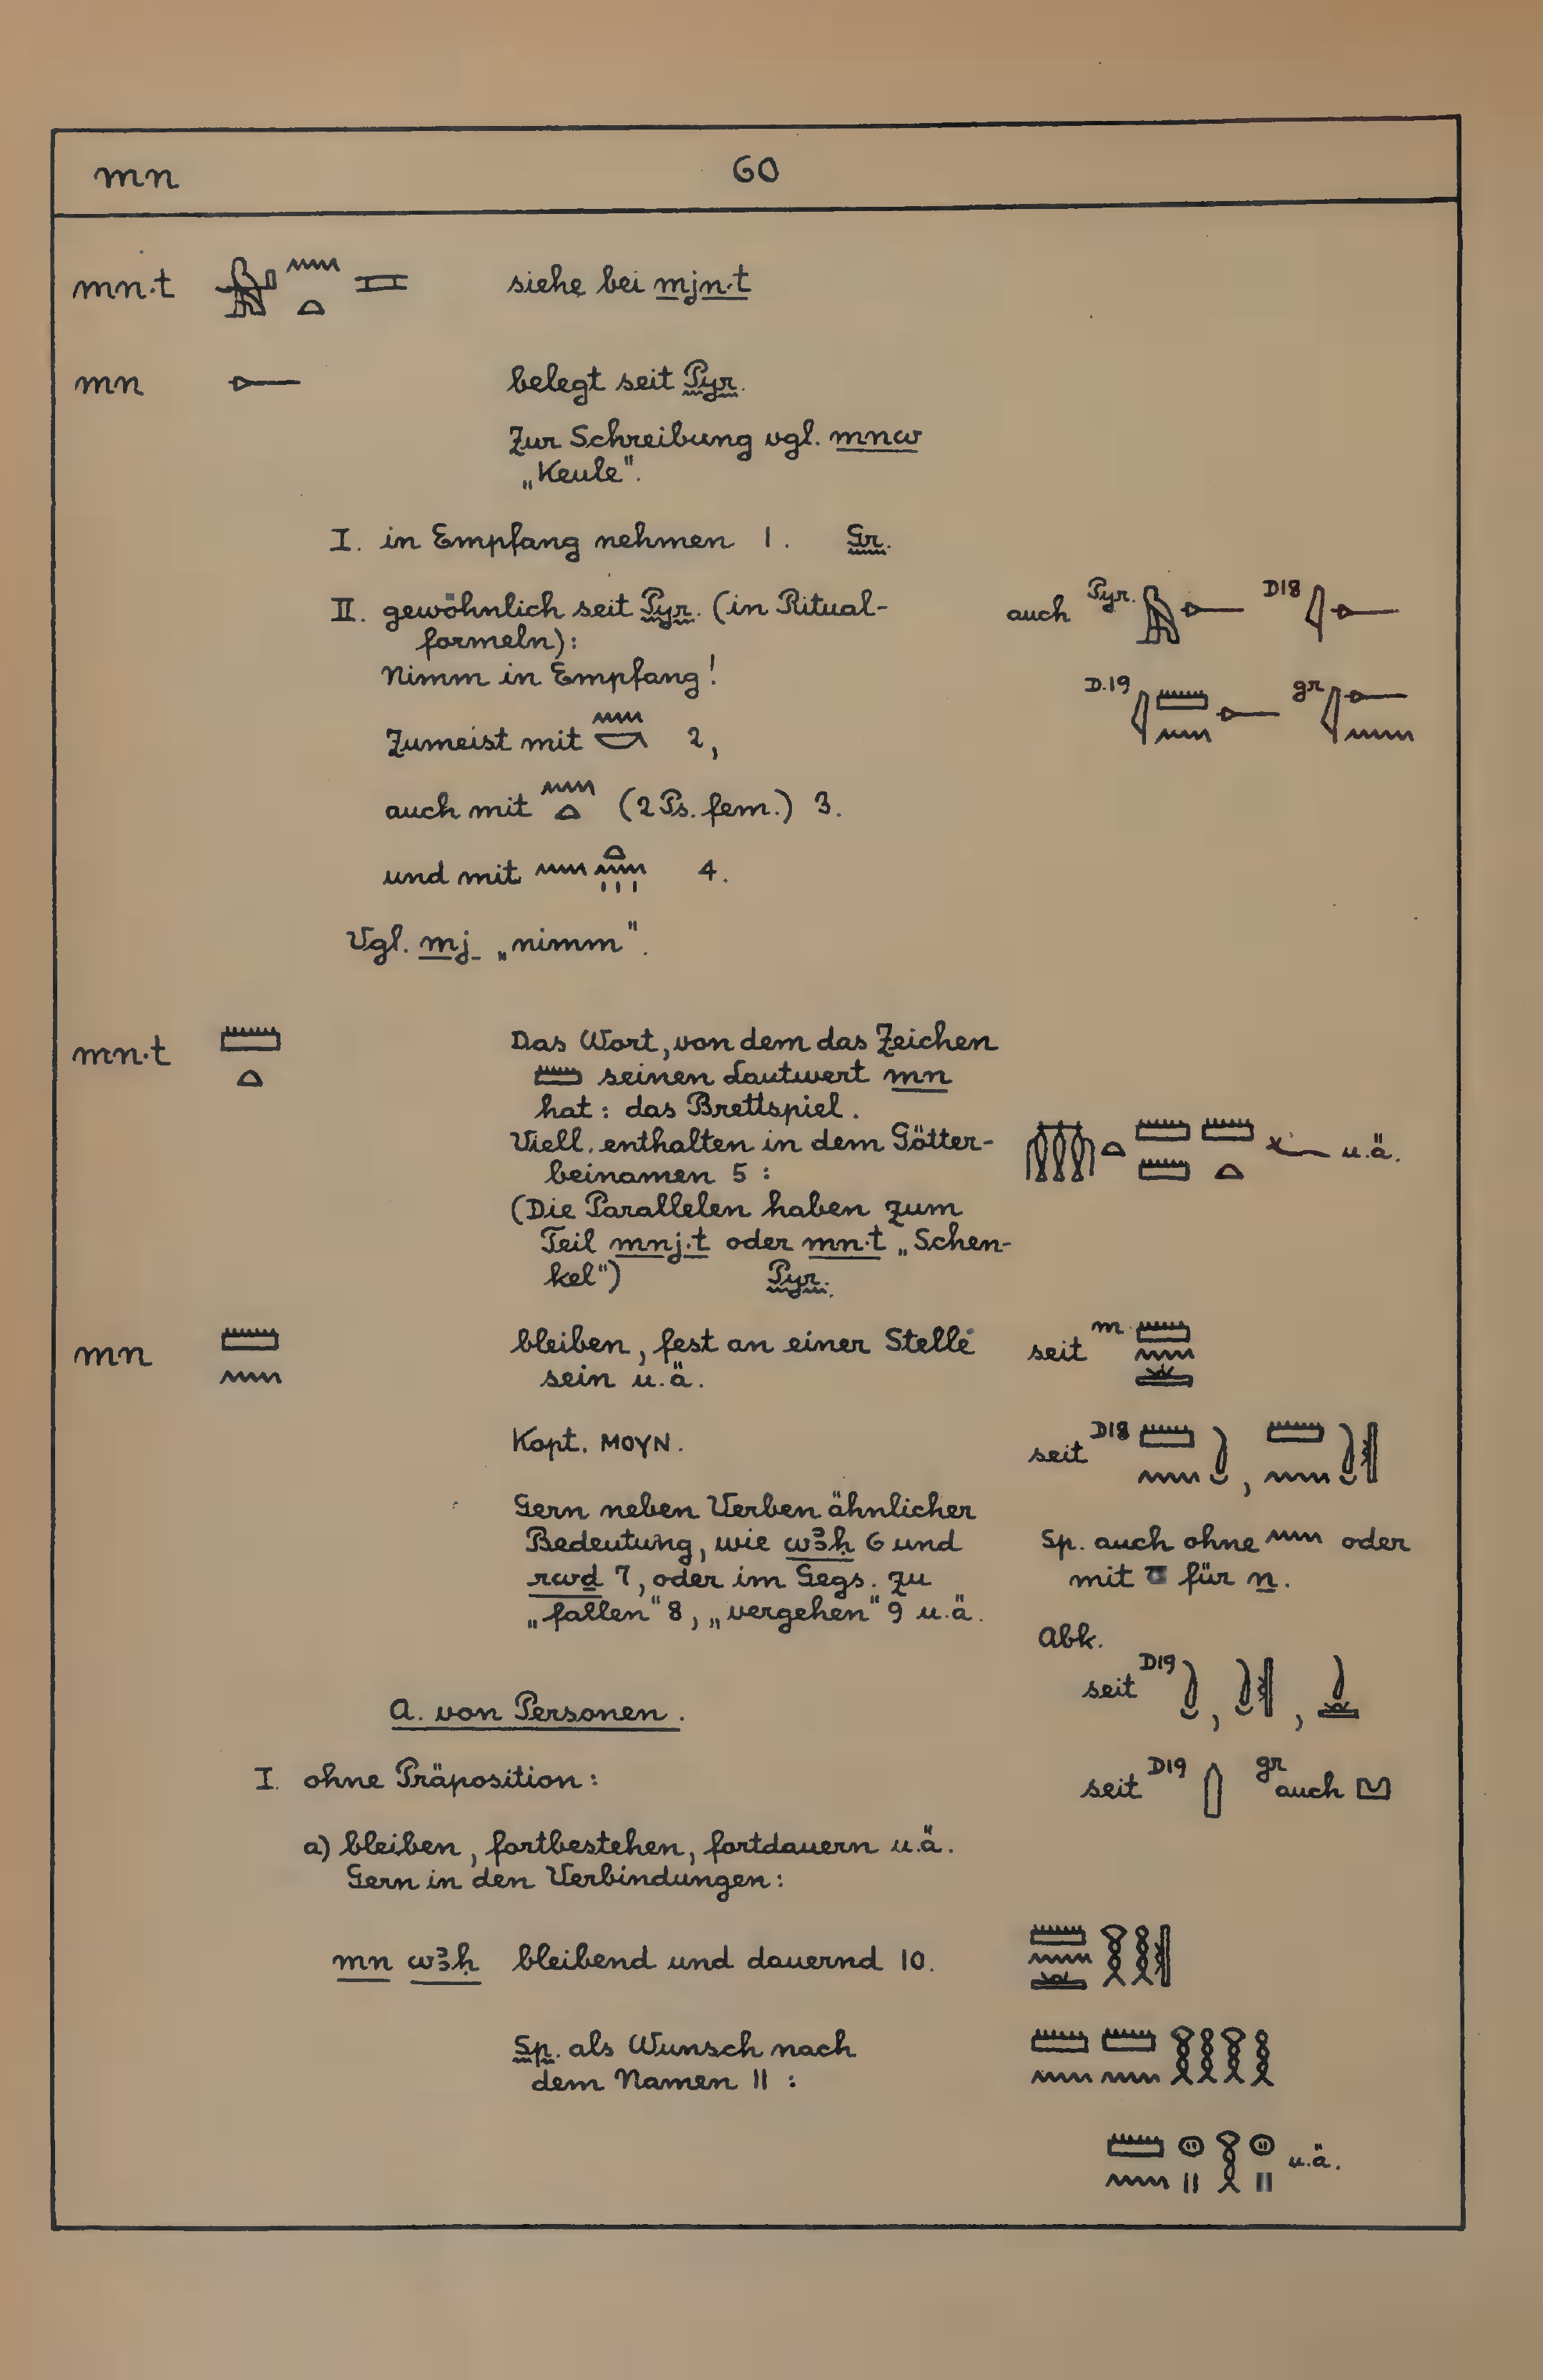 mn 60
mn·t siehe bei mjn·t
mn belegt seit Pyr.
Zur Schreibung vgl. mnw
„Keule".
I. in Empfang nehmen 1. Gr.
II. gewöhnlich seit Pyr. (in Ritual-
formeln):
Nimm in Empfang!
auch Pyr. D18
D.19 gr
Zumeist mit 2,
auch mit (2 Ps. fem.) 3.
und mit 4.
Vgl. mj „nimm".
mn·t Das Wort, von dem das Zeichen
seinen Lautwert mn
hat: das Brettspiel.
Viell. enthalten in dem Götter-
beinamen 5: u.ä.
(Die Parallelen haben zum
Teil mnj.t oder mn·t „Schen-
kel") Pyr.
mn bleiben, fest an einer Stelle
sein u.ä.
seit m.
Kopt. ⲙⲟⲩⲛ.
seit D18 ,
Gern neben Verben ähnlicher
Bedeutung, wie wꜣḥ 6 und
rwḏ 7, oder im Gegs. zu
„fallen" 8, „vergehen" 9 u.ä.
Sp. auch ohne oder
mit für n.
Abk.
seit D19 , ,
A. von Personen.
I. ohne Präposition:
seit D19 gr auch
a) bleiben, fortbestehen, fortdauern u.ä.
Gern in den Verbindungen:
mn wꜣḥ bleibend und dauernd 10.
Sp. als Wunsch nach
dem Namen 11:
u.ä.